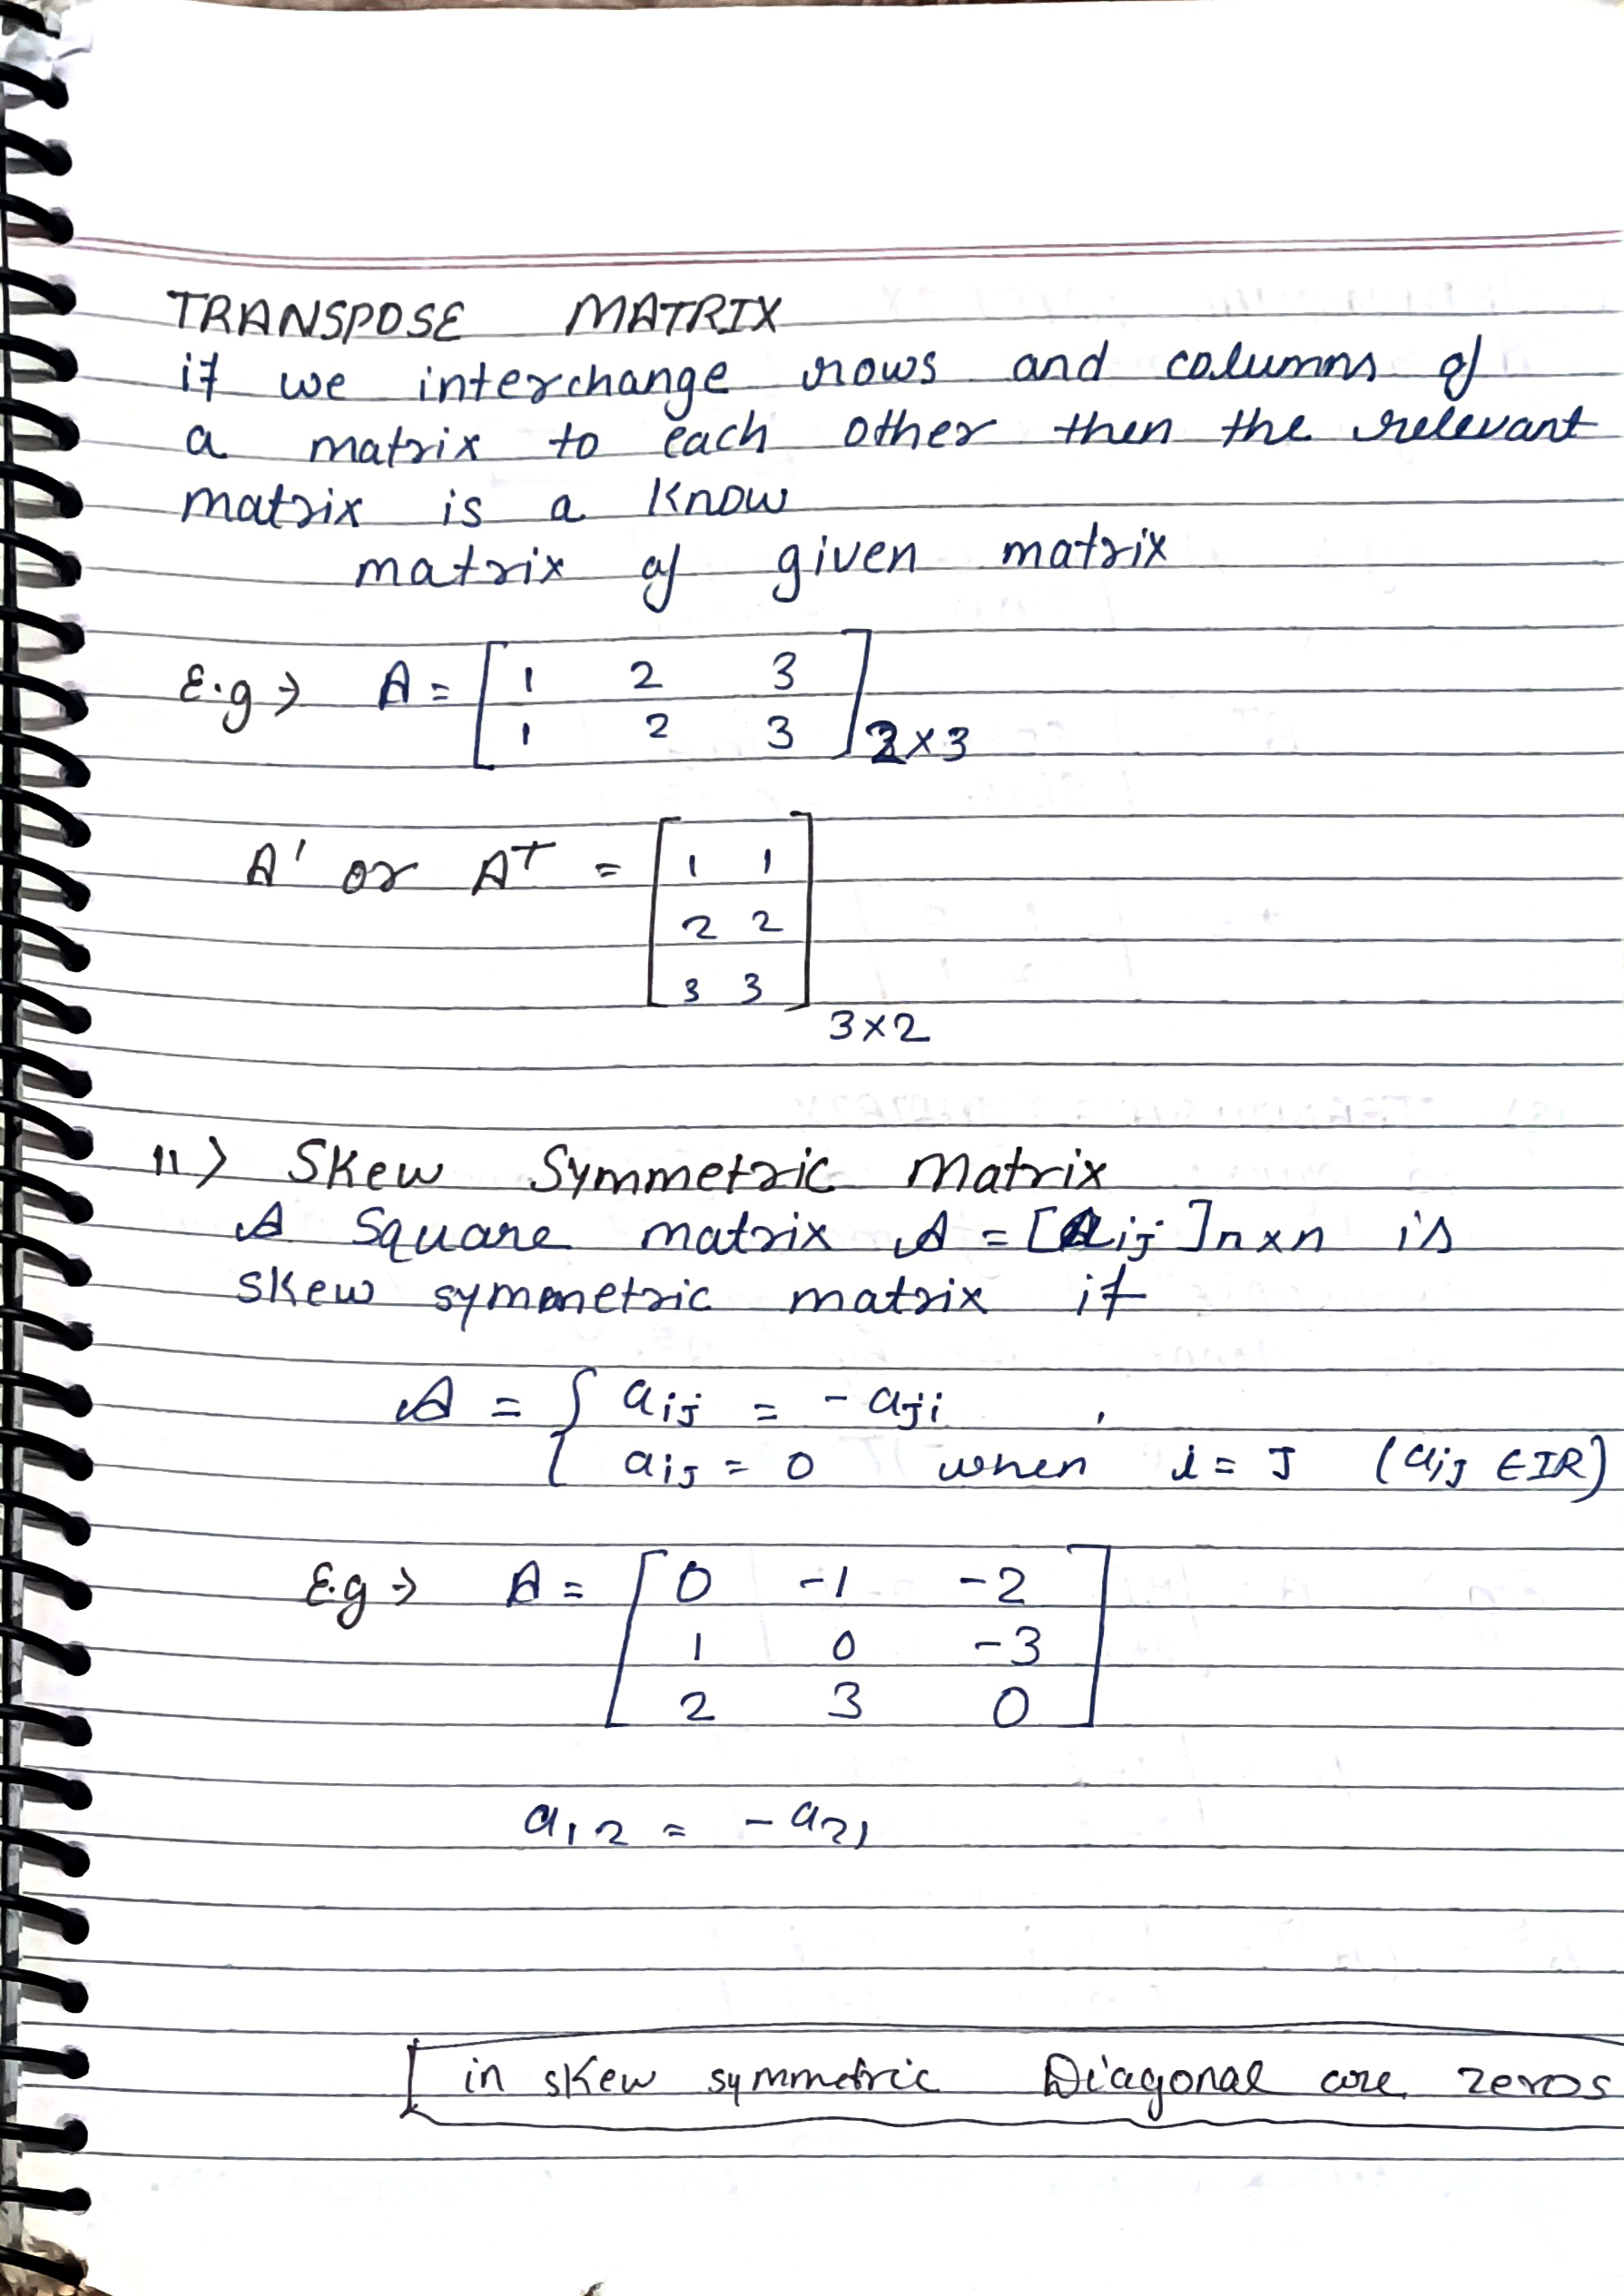 TRANSPOSE MATRIX
if we interchange rows and columns of
a matrix to each other then the relevant
matrix is a Know
matrix of given matrix
E.g → A = [ 1 2 3
1 2 3 ] 2×3
A' or Aᵀ = [ 1 1
2 2
3 3 ]
3×2
11> Skew Symmetric Matrix
A Square matrix A = [aij]n×n is
skew symmetric matrix if
A = { aij = -aji ,
aij = 0 when i = J (aij ∈ IR)
E.g → A = [ 0 -1 -2
1 0 -3
2 3 0 ]
a12 = -a21
in skew symmetric Diagonal are zeros